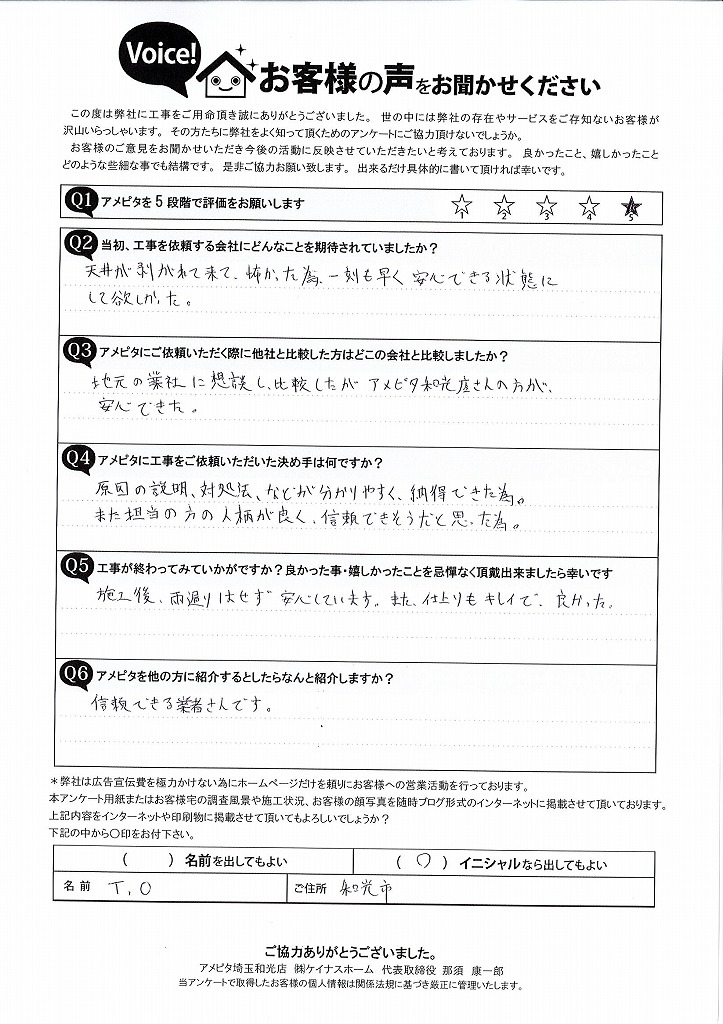 Voice!
お客様の声をお聞かせください
この度は弊社に工事をご用命頂き誠にありがとうございました。 世の中には弊社の存在やサービスをご存知ないお客様が
沢山いらっしゃいます。 その方たちに弊社をよく知って頂くためのアンケートにご協力頂けないでしょうか。
お客様のご意見をお聞かせいただき今後の活動に反映させていただきたいと考えております。 良かったこと、嬉しかったこと
どのような些細な事でも結構です。 是非ご協力お願い致します。 出来るだけ具体的に書いて頂ければ幸いです。
Q1 アメピタを5段階で評価をお願いします
1 2 3 4 5
Q2 当初、工事を依頼する会社にどんなことを期待されていましたか?
天井が剥がれて来て、怖かった為、一刻も早く安心できる状態に
して欲しかった。
Q3 アメピタにご依頼いただく際に他社と比較した方はどこの会社と比較しましたか?
地元の業社に想談し、比較したが アメピタ和光店さんの方が、
安心できた。
Q4 アメピタに工事をご依頼いただいた決め手は何ですか?
原因の説明、対処法、などが分かりやすく、納得できた為。
また担当の方の人柄が良く、信頼できそうだと思った為。
Q5 工事が終わってみていかがですか?良かった事・嬉しかったことを忌憚なく頂戴出来ましたら幸いです
施工後、雨漏りはせず 安心しています。また、仕上りも キレイで、良かった。
Q6 アメピタを他の方に紹介するとしたらなんと紹介しますか?
信頼できる業者さんです。
*弊社は広告宣伝費を極力かけない為にホームページだけを頼りにお客様への営業活動を行っております。
本アンケート用紙またはお客様宅の調査風景や施工状況、お客様の顔写真を随時ブログ形式のインターネットに掲載させて頂いております。
上記内容をインターネットや印刷物に掲載させて頂いてもよろしいでしょうか?
下記の中から〇印をお付下さい。
( ) 名前を出してもよい ( 〇 ) イニシャルなら出してもよい
名前 T.O ご住所 和光市
ご協力ありがとうございました。
アメピタ埼玉和光店 ㈱ケイナスホーム 代表取締役 那須 康一郎
当アンケートで取得したお客様の個人情報は関係法規に基づき厳正に管理いたします。